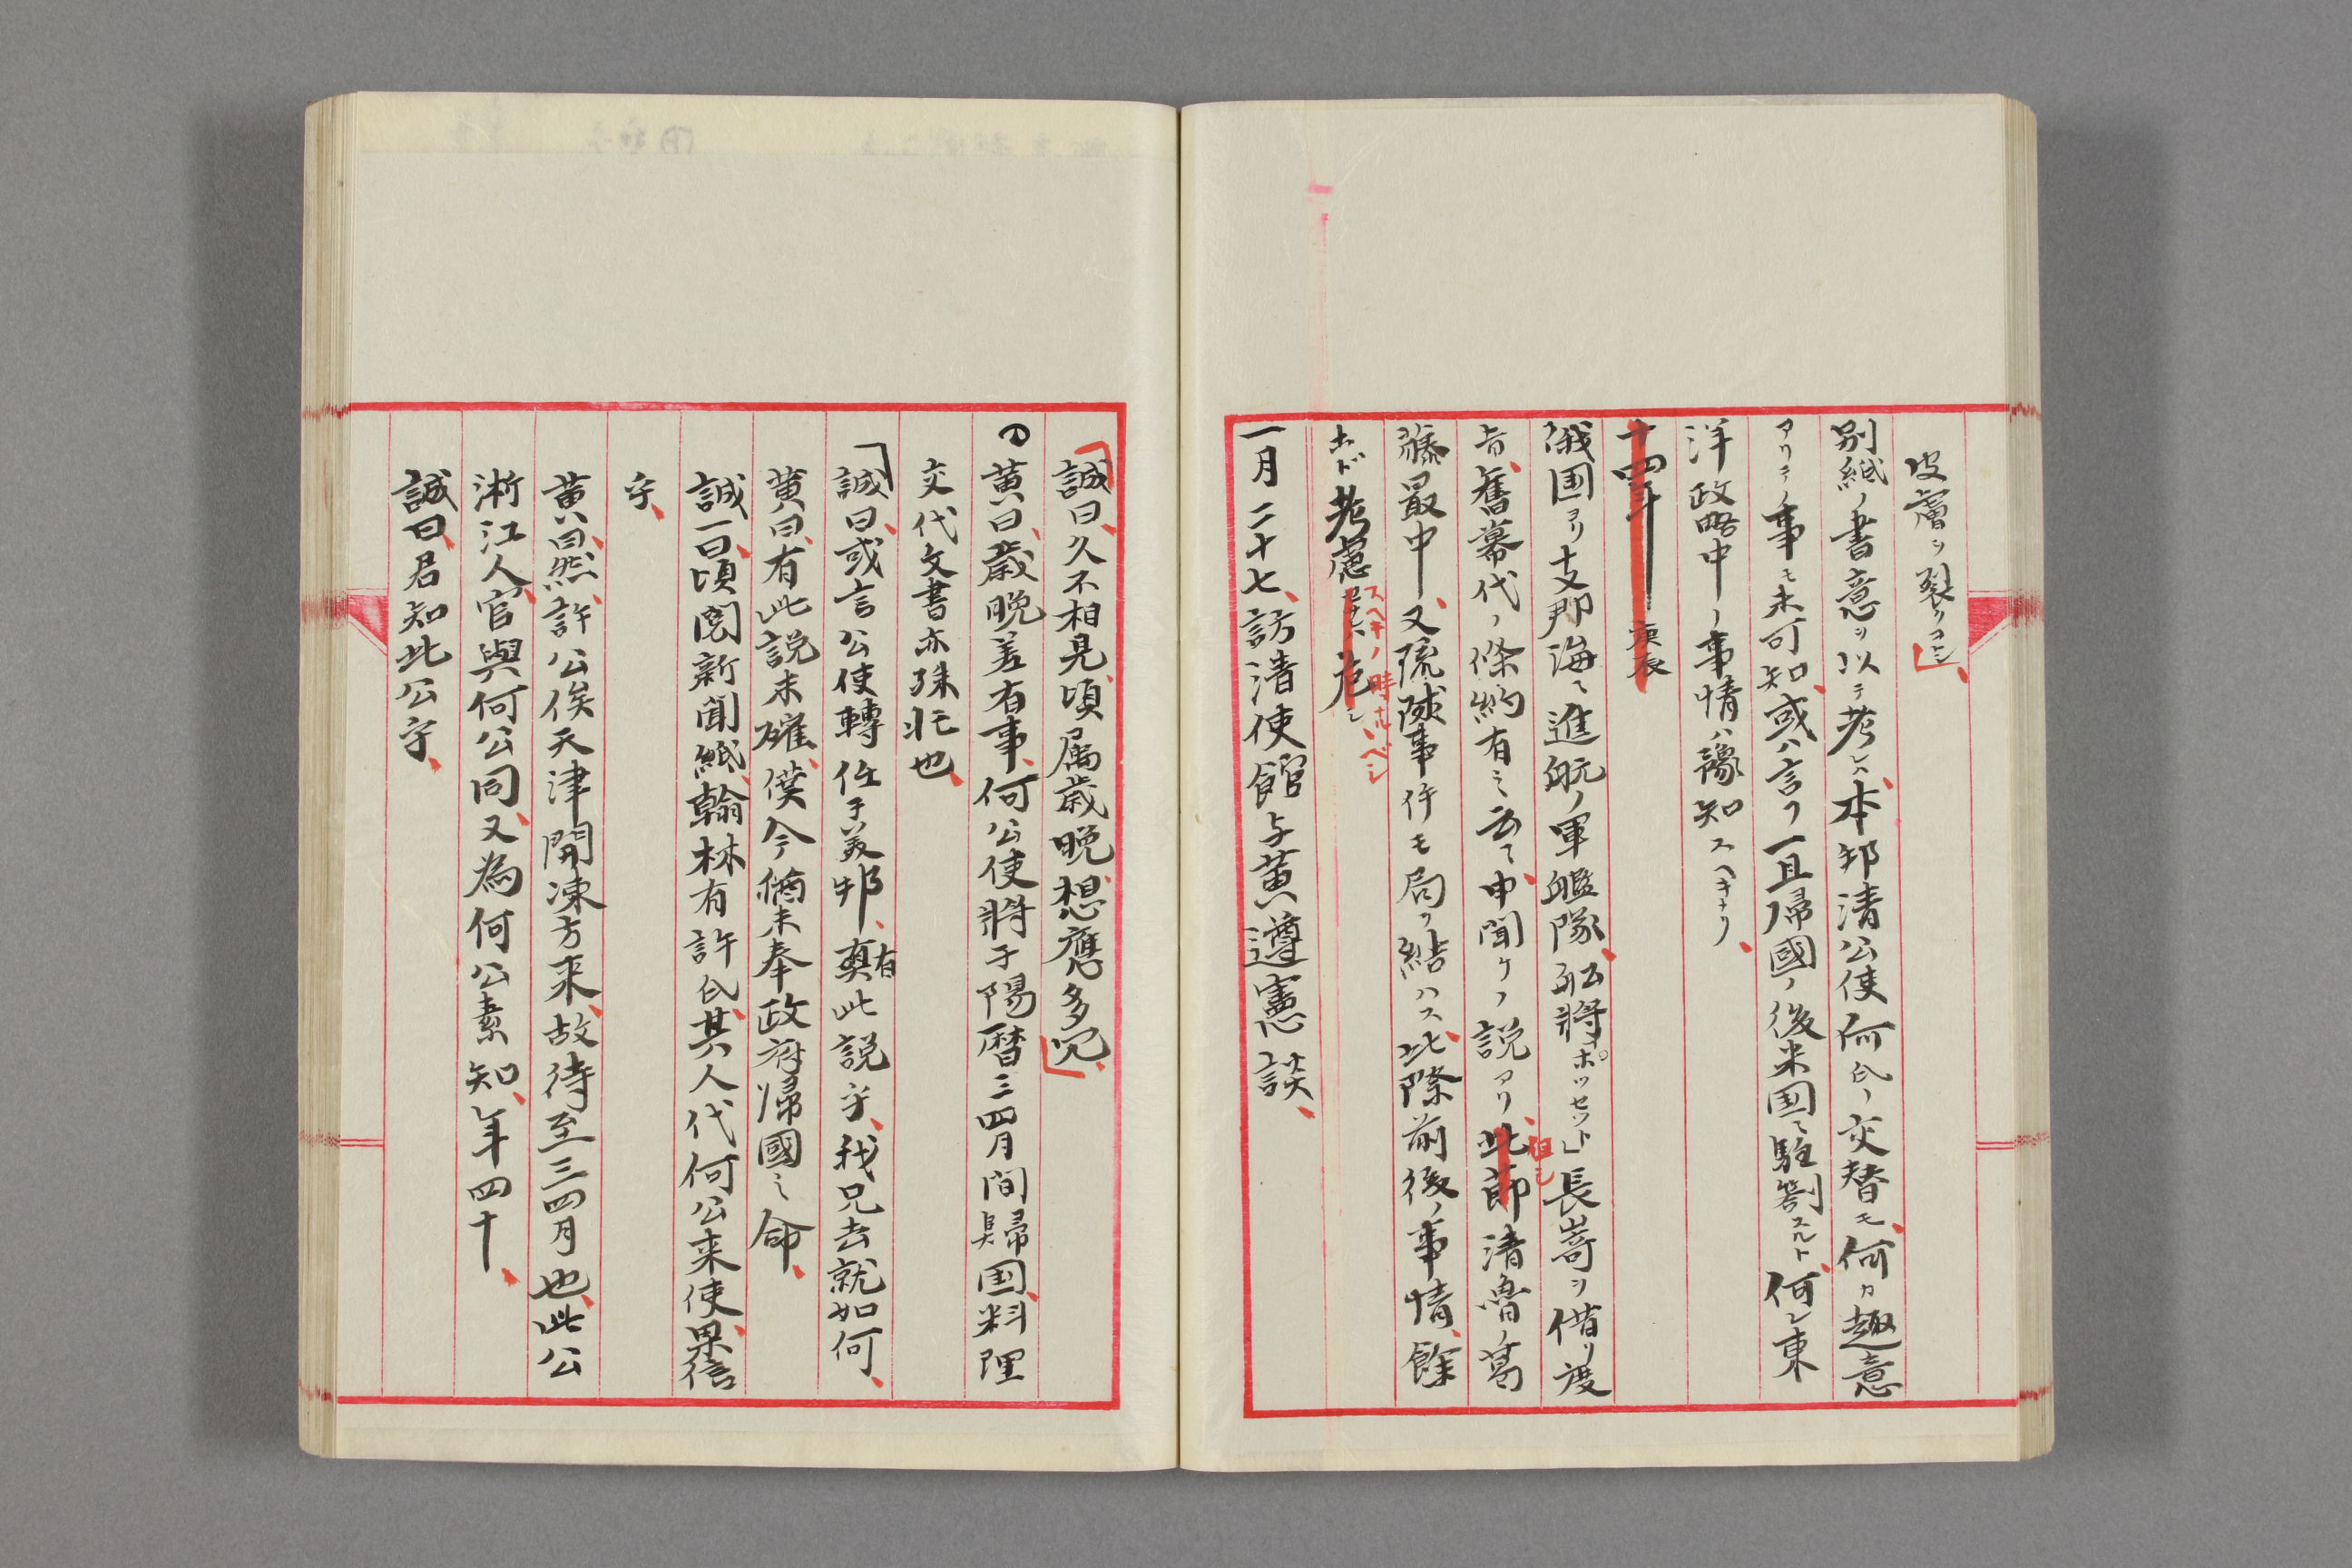 皮膚ヲ裂クコトシ」
別紙ノ書意ヲ以テ考レハ、本邦清公使何氏ノ交替モ、何カ趣意
アリテノ事モ未可知、或ハ言フ一且帰國ノ後米国ヘ駐劄スルト、何レ東
洋政略中ノ事情ハ豫知スヘキナリ、
十四年 庚辰
俄国ヨリ支那海ヘ進航ノ軍艦隊、舩将「ポツセツト」長崎ヲ借リ度
旨、舊幕代ノ條約有之云々申聞ケノ説アリ、此節清魯ノ葛
但シ
藤最中、又琉球事件モ局ヲ結ハス、此際前後ノ事情、餘
ホド考慮
スヘキノ時ナルベシ
一月二十七、訪清使館与黄遵憲談、
「誠曰、久不相見、頃属歳晩、想應多冗」
黄曰、歳晩差有事、何公使將于陽暦三四月間帰国、料理
交代文書亦殊忙也、
「誠曰、或言公使轉任于美邦、真有此説乎、我兄去就如何、
黄曰、有此説未確、僕今猶未奉政府帰國之命、
誠一曰、頃閲新聞紙、翰林有許氏、其人代何公来使、果信
乎、
黄曰、然、許公俟天津開凍方来、故待至三四月也、此公
淅江人、官與何公同、又為何公素知、年四十、
誠曰、君知此公乎、